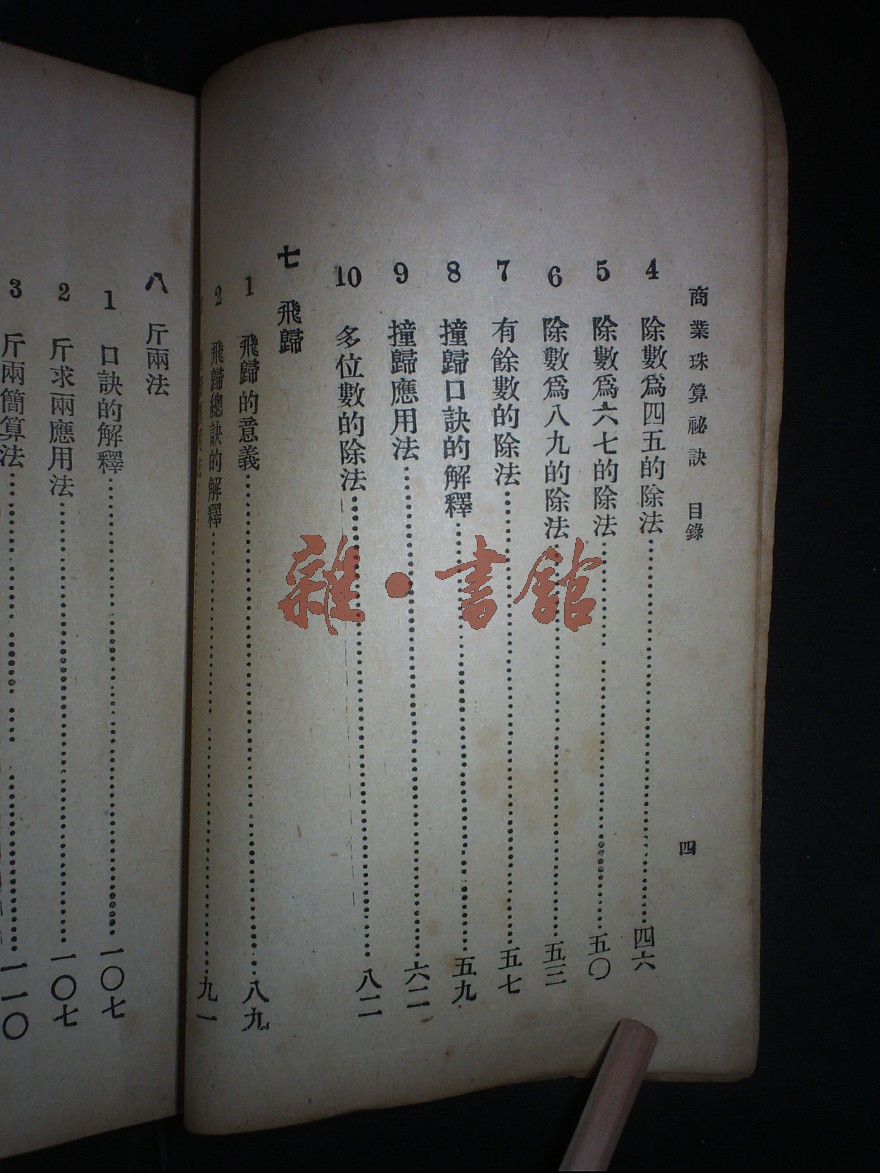 商業珠算祕訣 目錄 四
4 除數爲四五的除法 四六
5 除數爲六七的除法 五〇
6 除數爲八九的除法 五三
7 有餘數的除法 五七
8 撞歸口訣的解釋 五九
9 撞歸應用法 六二
10 多位數的除法 八二
七 飛歸
1 飛歸的意義 八九
2 飛歸總訣的解釋 九一
八 斤兩法
1 口訣的解釋 一〇七
2 斤求兩應用法 一〇七
3 斤兩簡算法 一一〇
雜·書館